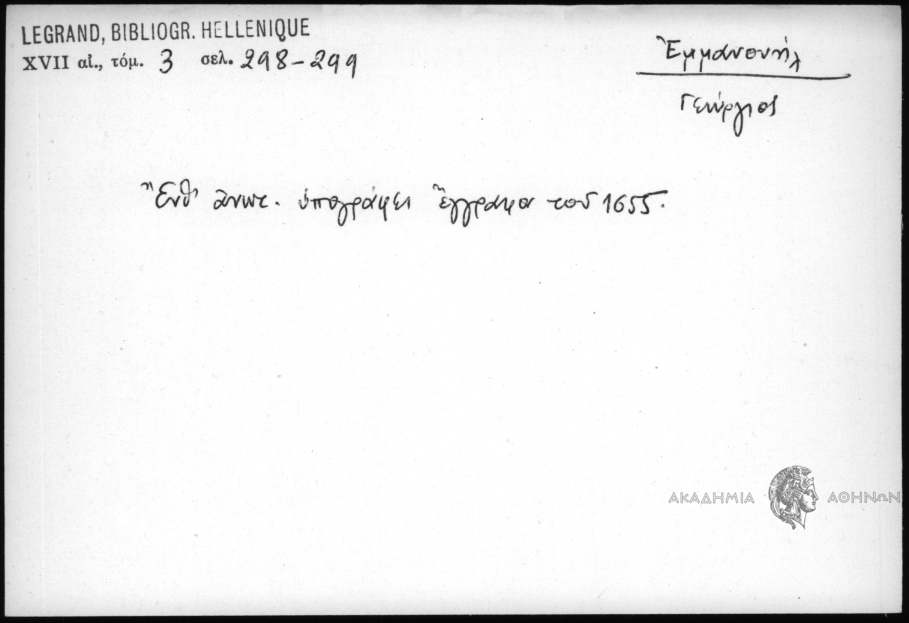 LEGRAND, BIBLIOGR. HELLENIQUE
XVII αἰ., τόμ. 3 σελ. 298-299
Ἐμμανουήλ
Γεώργιος
Ἔνθ' ἀνωτ. ὑπογράφει ἔγγραφον τοῦ 1655.
ΑΚΑΔΗΜΙΑ ΑΘΗΝΩΝ